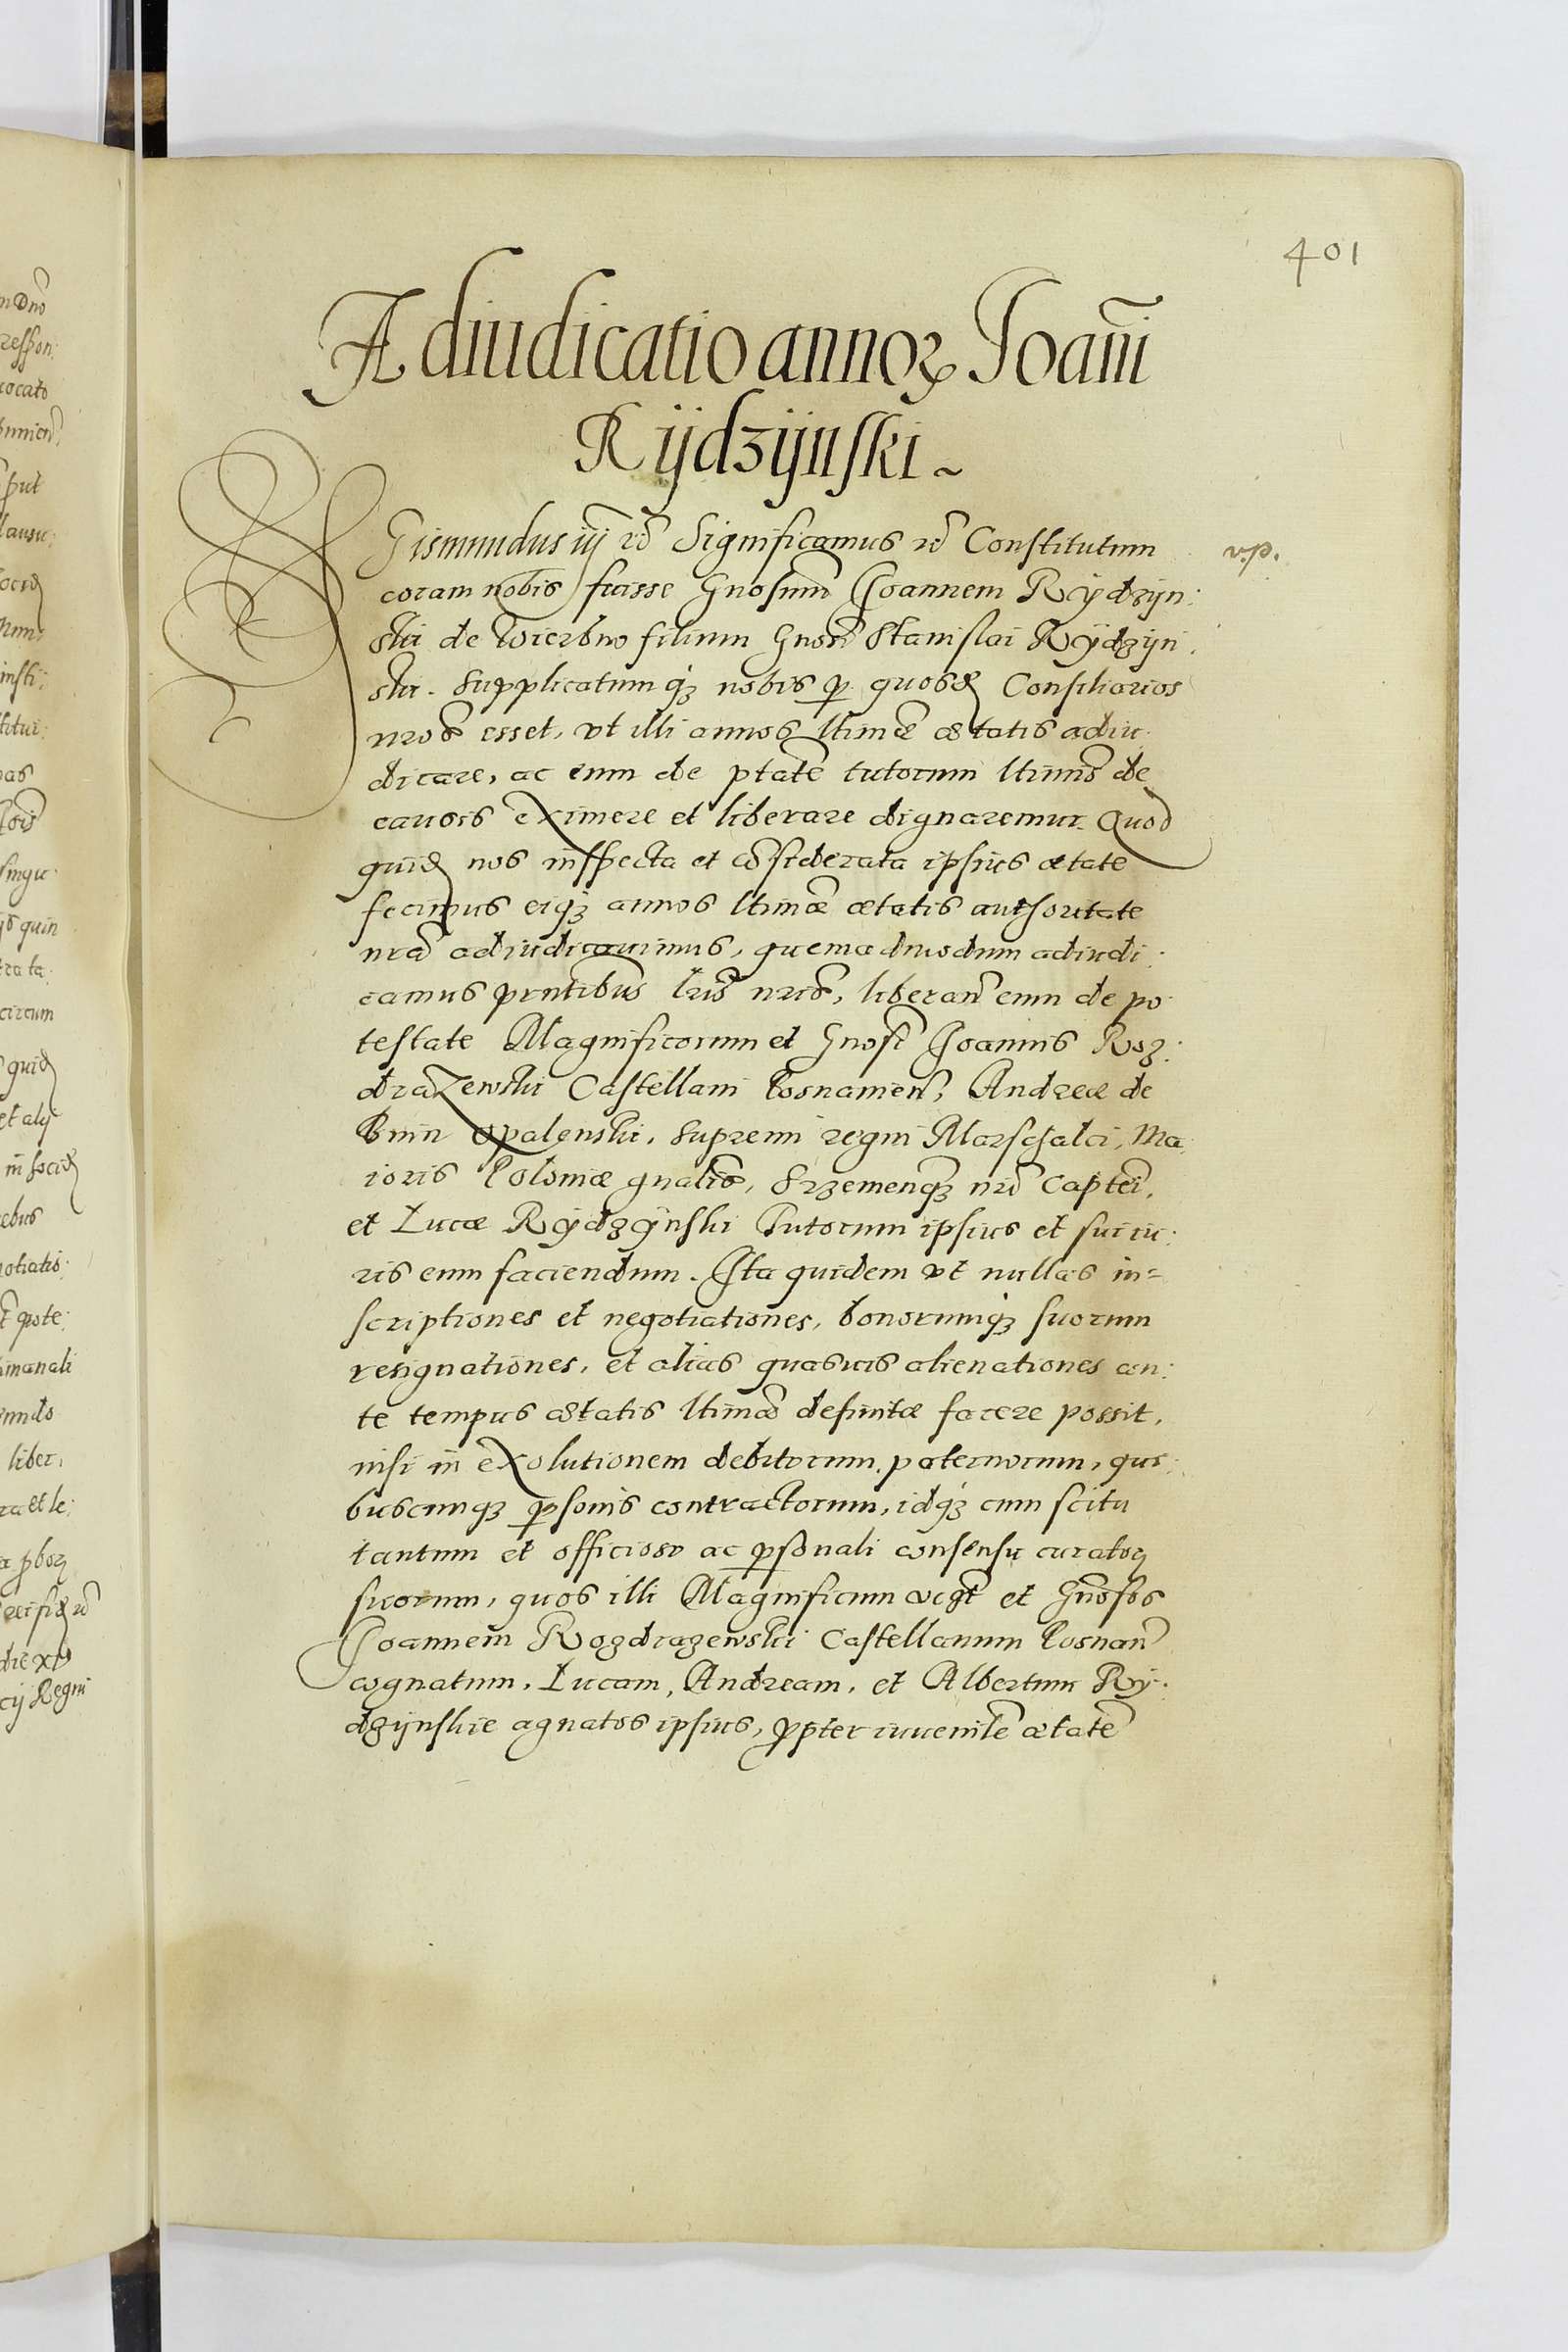 401
Adiudicatio annoꝝ Joan̄i
Rÿdzÿnski ~
SGismundus iij rc̄ Significamus rc̄ Constitutum
v.p.
coram nobis fuisse Gnosum̄ Joannem Rÿdzyn:
ski de Wierbno filium Gnosī Stanislai Rÿdzyn:
ski. Supplicatumqꝫ nobis ꝑ quosd Consiliarios
nr̄os esset, vt illi annos ltimǣ ætatis adiu:
dicare, ac eum de ptatē tutorum ltimīs de
causis eximere et liberare dignaremur. Quod
quid nos inspecta et cōsiderata ipsius ætate
fecimus eiqꝫ annos ltimǣ ætatis authoritate
nrā adiudicauimus, quemadmodum adiudi:
camus pn̄tibus lr̄is nr̄is, liberan̄ eum de po:
testate Magnificorum et Gnosī Joannis Roz:
drazewski Castellani Posnanien̄, Andreæ de
Bnin Opalenski, Supremi regni Marschalci, Ma:
ioris Poloniæ gn̄alis, Srzemenqꝫ nr̄i Captei,
et Lucæ Rÿdzÿnski Tutorum ipsius et sui iu:
ris eum faciendum. Ita quidem vt nullas in=
scriptiones et negotiationes, bonorumqꝫ suorum
resignationes, et alias quasuis alienationes an:
te tempus ætatis ltimǣ definitæ facere possit,
nisi in exolutionem debitorum paternorum, qui:
buscunqꝫ ꝑsonis contractorum, idqꝫ cum scitu
tantum et officioso ac ꝑsonali consensu curatoꝝ
suorum, quos illi Magnificum vcꝫt et Gnosos
Joannem Rozdrazewski Castellanum Posnan̄
cognatum, Lucam, Andream, et Albertum Ry:
dzynskie agnatos ipsius, ꝓpter iuuenilē ætatē